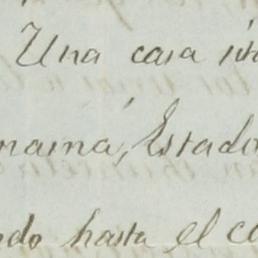 Una casa
namá, Estado
ndo hasta el co